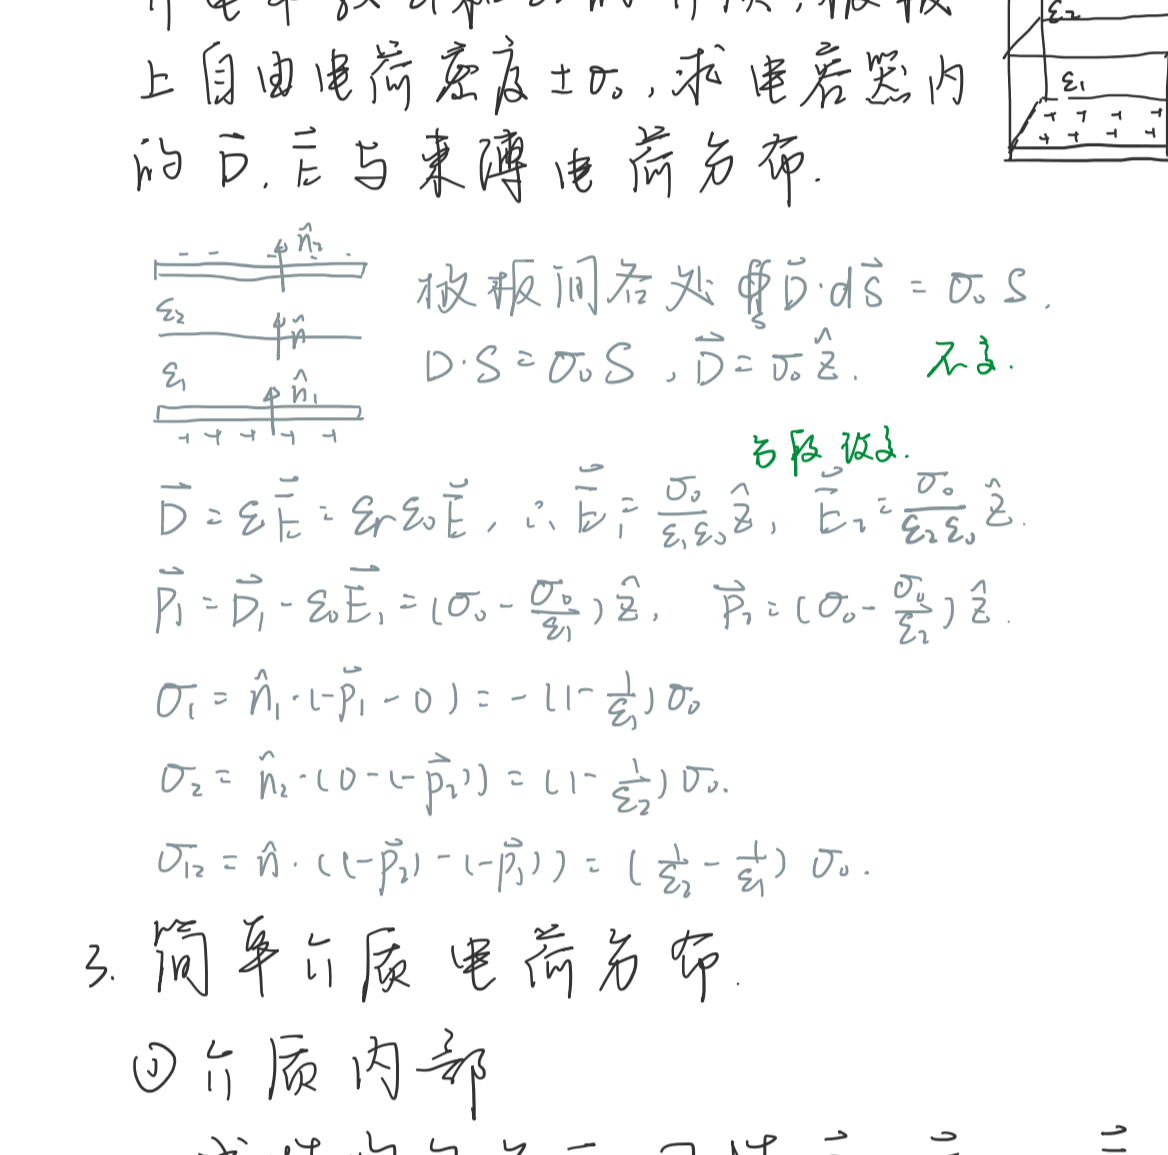 上自由电荷密度±σ₀,求电容器内
的 D⃗, E⃗ 与束缚电荷分布.
ε₂
ε₁
+ + + +
+ + + +
- - - -
n̂₂
ε₂
n̂
ε₁
n̂₁
+ + + + +
极板间各处 ∯ₛ D⃗·dS⃗ = σ₀S.
D·S = σ₀S, D⃗ = σ₀ẑ. 不变.
分段改变.
D⃗ = εE⃗ = εrε₀E⃗, ∴ E⃗₁ = σ₀/(ε₁ε₀) ẑ, E⃗₂ = σ₀/(ε₂ε₀) ẑ.
P⃗₁ = D⃗₁ - ε₀E⃗₁ = (σ₀ - σ₀/ε₁) ẑ, P⃗₂ = (σ₀ - σ₀/ε₂) ẑ.
σ₁ = n̂₁·(-P⃗₁ - 0) = -(1 - 1/ε₁) σ₀
σ₂ = n̂₂·(0 - (-P⃗₂)) = (1 - 1/ε₂) σ₀.
σ₁₂ = n̂·((-P⃗₂) - (-P⃗₁)) = (1/ε₂ - 1/ε₁) σ₀.
3. 简单介质电荷分布.
① 介质内部